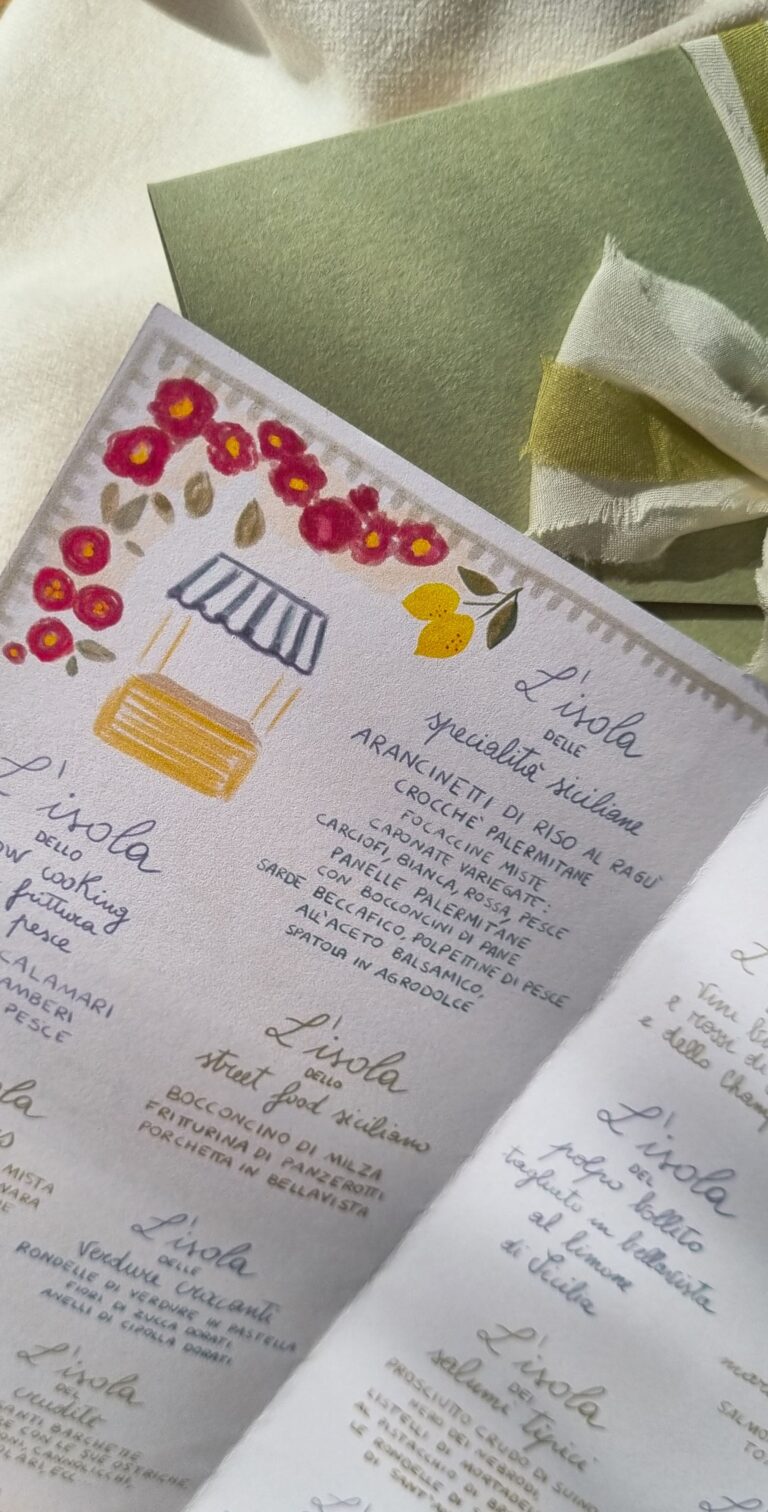 L'isola
DELLE
specialità siciliane
ARANCINETTI DI RISO AL RAGÙ
CROCCHÈ PALERMITANE
FOCACCINE MISTE
CAPONATE VARIEGATE:
CARCIOFI, BIANCA, ROSSA, PESCE
PANELLE PALERMITANE
CON BOCCONCINI DI PANE
SARDE BECCAFICO, POLPETTINE DI PESCE
ALL'ACETO BALSAMICO,
SPATOLA IN AGRODOLCE
L'isola
DELLO
cooking
frittura
pesce
CALAMARI
PESCE
L'isola
DELLO
street food siciliano
BOCCONCINO DI MILZA
FRITTURINA DI PANZEROTTI
PORCHETTA IN BELLAVISTA
MISTA
L'isola
DELLE
verdure croccanti
RONDELLE DI VERDURE IN PASTELLA
FIORI DI ZUCCA DORATI
ANELLI DI CIPOLLA DORATI
L'isola
DEL
crudité
BARCHETTE
CON LE SUE OSTRICHE,
CANNOLICCHI,
e rossi di
e dello
L'isola
DEL
polpo bollito
tagliato in bellavista
al limone
di Sicilia
L'isola
DEI
salumi tipici
PROSCIUTTO CRUDO DI
NERO DEI NEBRODI
LISTELLI DI
AL PISTACCHIO DI
LE RONDELLE DI
DI